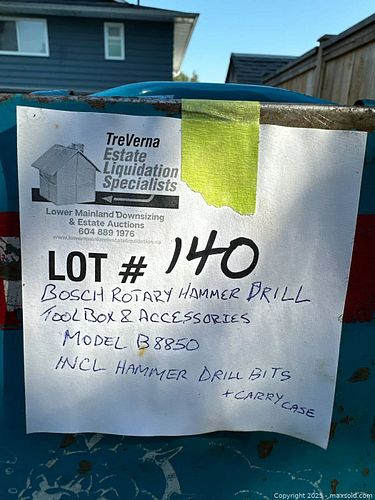 TreVerna
Estate
Liquidation
Specialists
Lower Mainland Downsizing
& Estate Auctions
604 889 1976
www.lowermainlandestateliquidation.ca
LOT # 140
BOSCH ROTARY HAMMER DRILL
TOOL BOX & ACCESSORIES
MODEL B8850
INCL HAMMER DRILL BITS
+ CARRY CASE
Copyright 2025 - maxsold.com